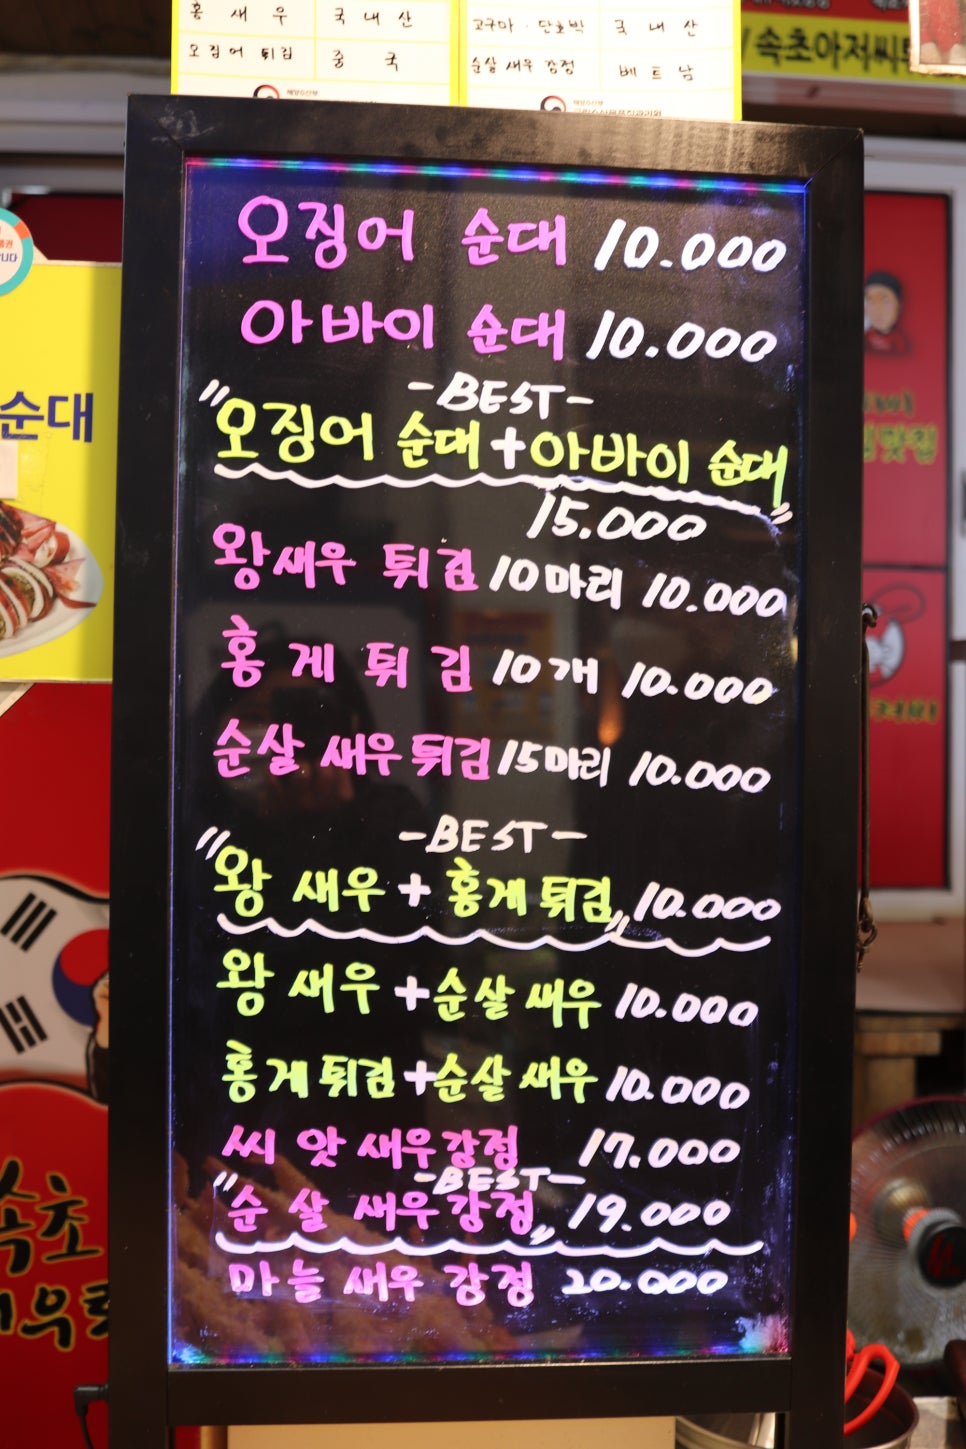 홍새우 국내산
오징어 튀김 중국
고구마·단호박 국내산
순살 새우 강정 베트남
해양수산부
해양수산부
속초아저씨
순대
오징어 순대 10.000
아바이 순대 10.000
-BEST-
"오징어 순대+아바이 순대"
15.000
왕새우 튀김 10마리 10.000
홍게튀김 10개 10.000
순살 새우튀김 15마리 10.000
-BEST-
"왕 새우+홍게튀김" 10.000
왕 새우+순살새우 10.000
홍게튀김+순살 새우 10.000
씨앗 새우강정 17.000
-BEST-
"순살 새우강정" 19.000
마늘 새우 강정 20.000
속초
새우